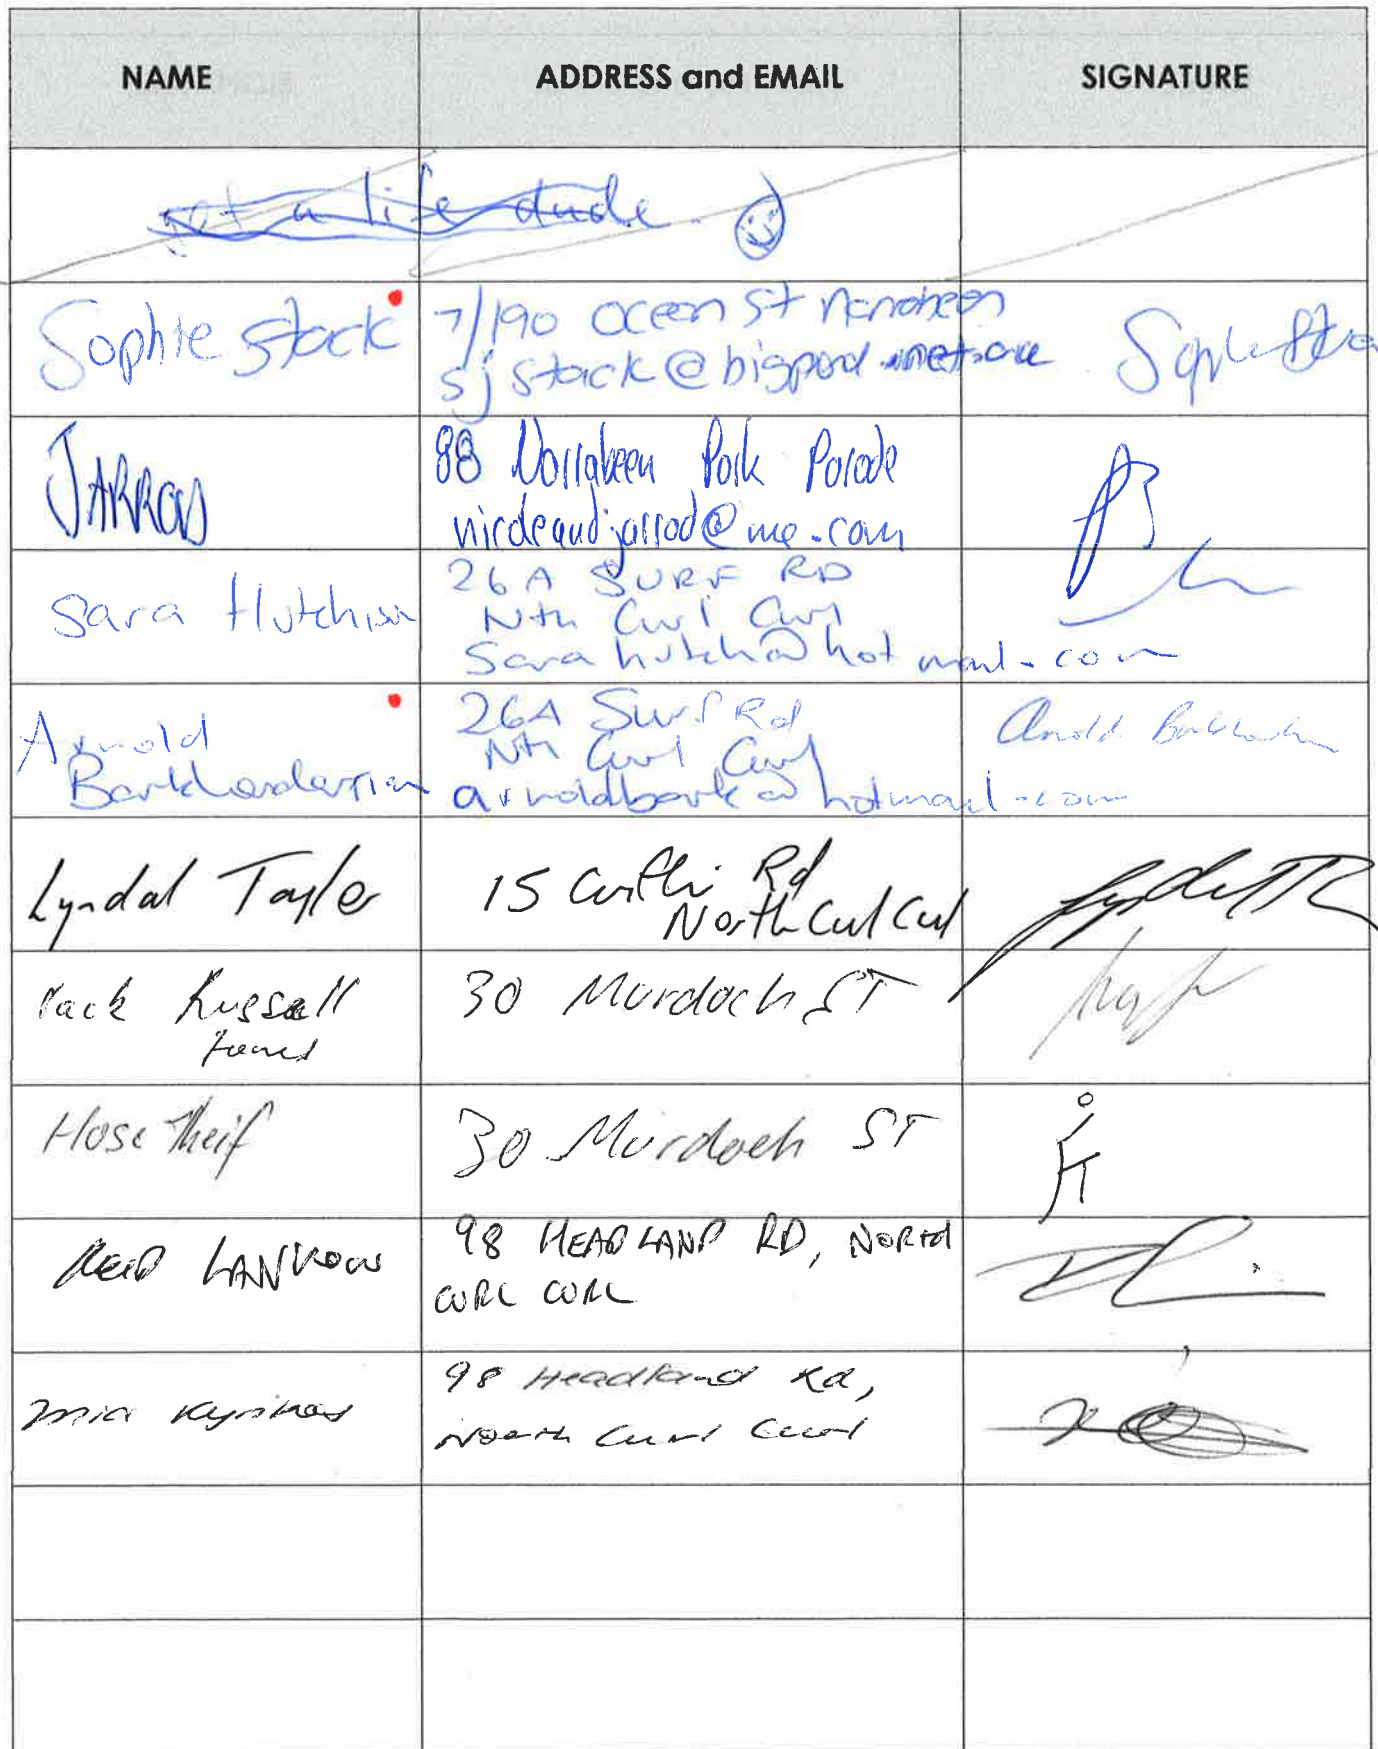 NAME ADDRESS and EMAIL SIGNATURE
get a life dude.
Sophie Stack 7/190 Ocean St Narrabeen
sjstack@bigpond.net.au
JARROD 88 Narrabeen Park Parade
nicoleandjarrod@me.com
Sara Hutchison 26A SURF RD
Nth Curl Curl
Sarahutch@hotmail.com
Arnold 26A Surf Rd
Nth Curl Curl
arnoldbark@hotmail.com
Lyndal Tayler 15 Rd
North Curl Curl
Russell 30 Murdoch ST
Hose Theif 30 Murdoch ST
REID LANKOW 98 HEADLAND RD, NORTH
CURL CURL
Mia 98 Headland Rd,
North Curl Curl